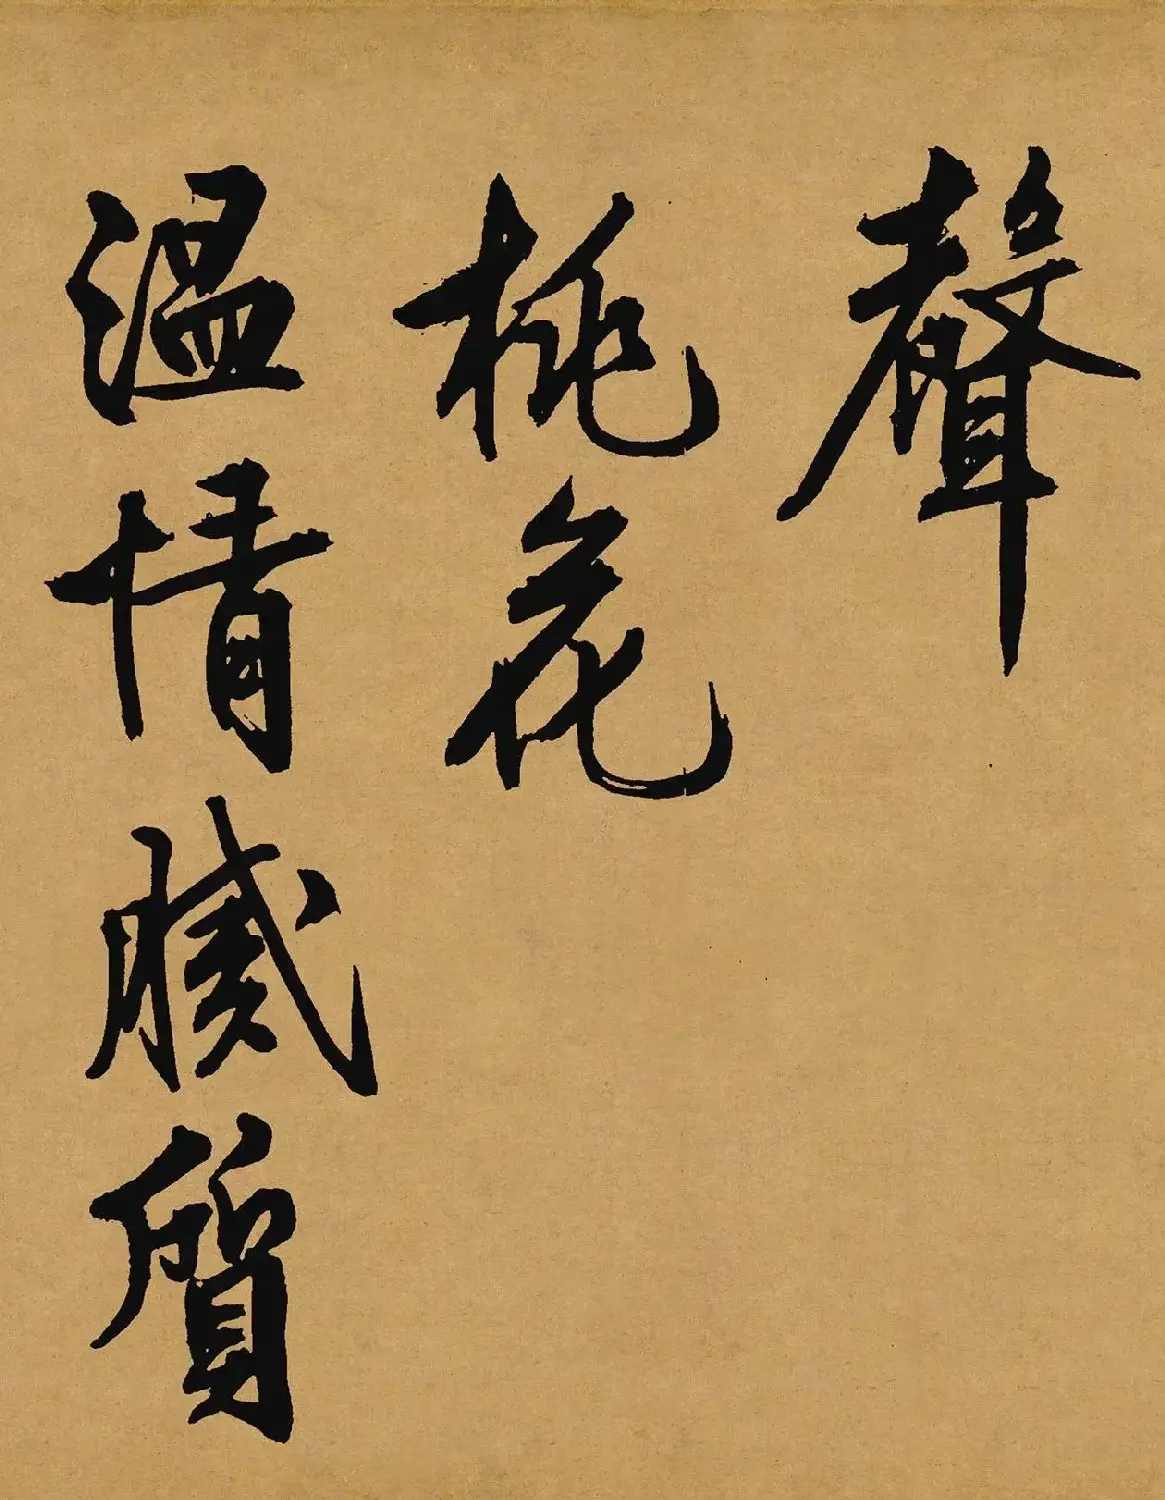 聲
桃花
溫情膩質